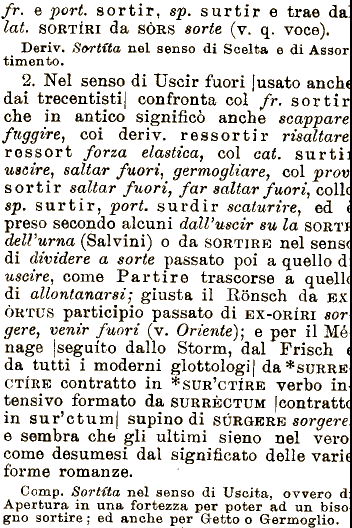 fr. e port. sortir, sp. surtir e trae da
lat. SORTÍRI da SÒRS sorte (v. q. voce).
Deriv. Sortíta nel senso di Scelta e di Assor
timento.
2. Nel senso di Uscir fuori |usato anche
dai trecentisti| confronta col fr. sortir
che in antico significò anche scappare
fuggire, coi deriv. ressortir risaltare
ressort forza elastica, col cat. surtir
uscire, saltar fuori, germogliare, col prov
sortir saltar fuori, far saltar fuori, collo
sp. surtir, port. surdir scaturire, ed è
preso secondo alcuni dall'uscir su la SORTE
dell'urna (Salvini) o da SORTIRE nel senso
di dividere a sorte passato poi a quello di
uscire, come Partire trascorse a quello
di allontanarsi; giusta il Rönsch da EX
ÒRTUS participio passato di EX-ORÍRI sor
gere, venir fuori (v. Oriente); e per il Mé
nage |seguíto dallo Storm, dal Frisch e
da tutti i moderni glottologi| da *SURRE
CTÍRE contratto in *SUR'CTÍRE verbo in-
tensivo formato da SURRÈCTUM |contratto
in sur'ctum| supino di SÚRGERE sorgere
e sembra che gli ultimi sieno nel vero
come desumesi dal significato delle varie
forme romanze.
Comp. Sortíta nel senso di Uscita, ovvero di
Apertura in una fortezza per poter ad un biso
gno sortire; ed anche per Getto o Germoglio.